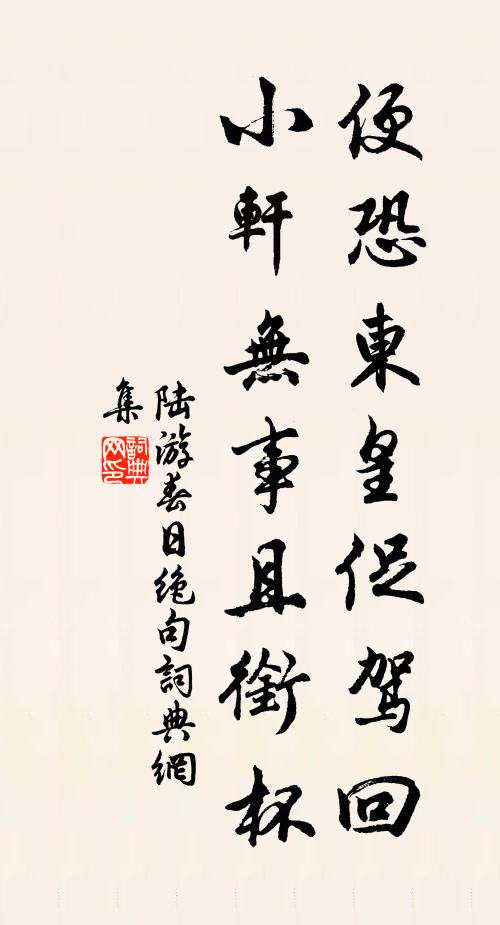 便恐東皇促駕回
小軒無事且銜杯
陆游春日绝句詞典網
集
詞典网印